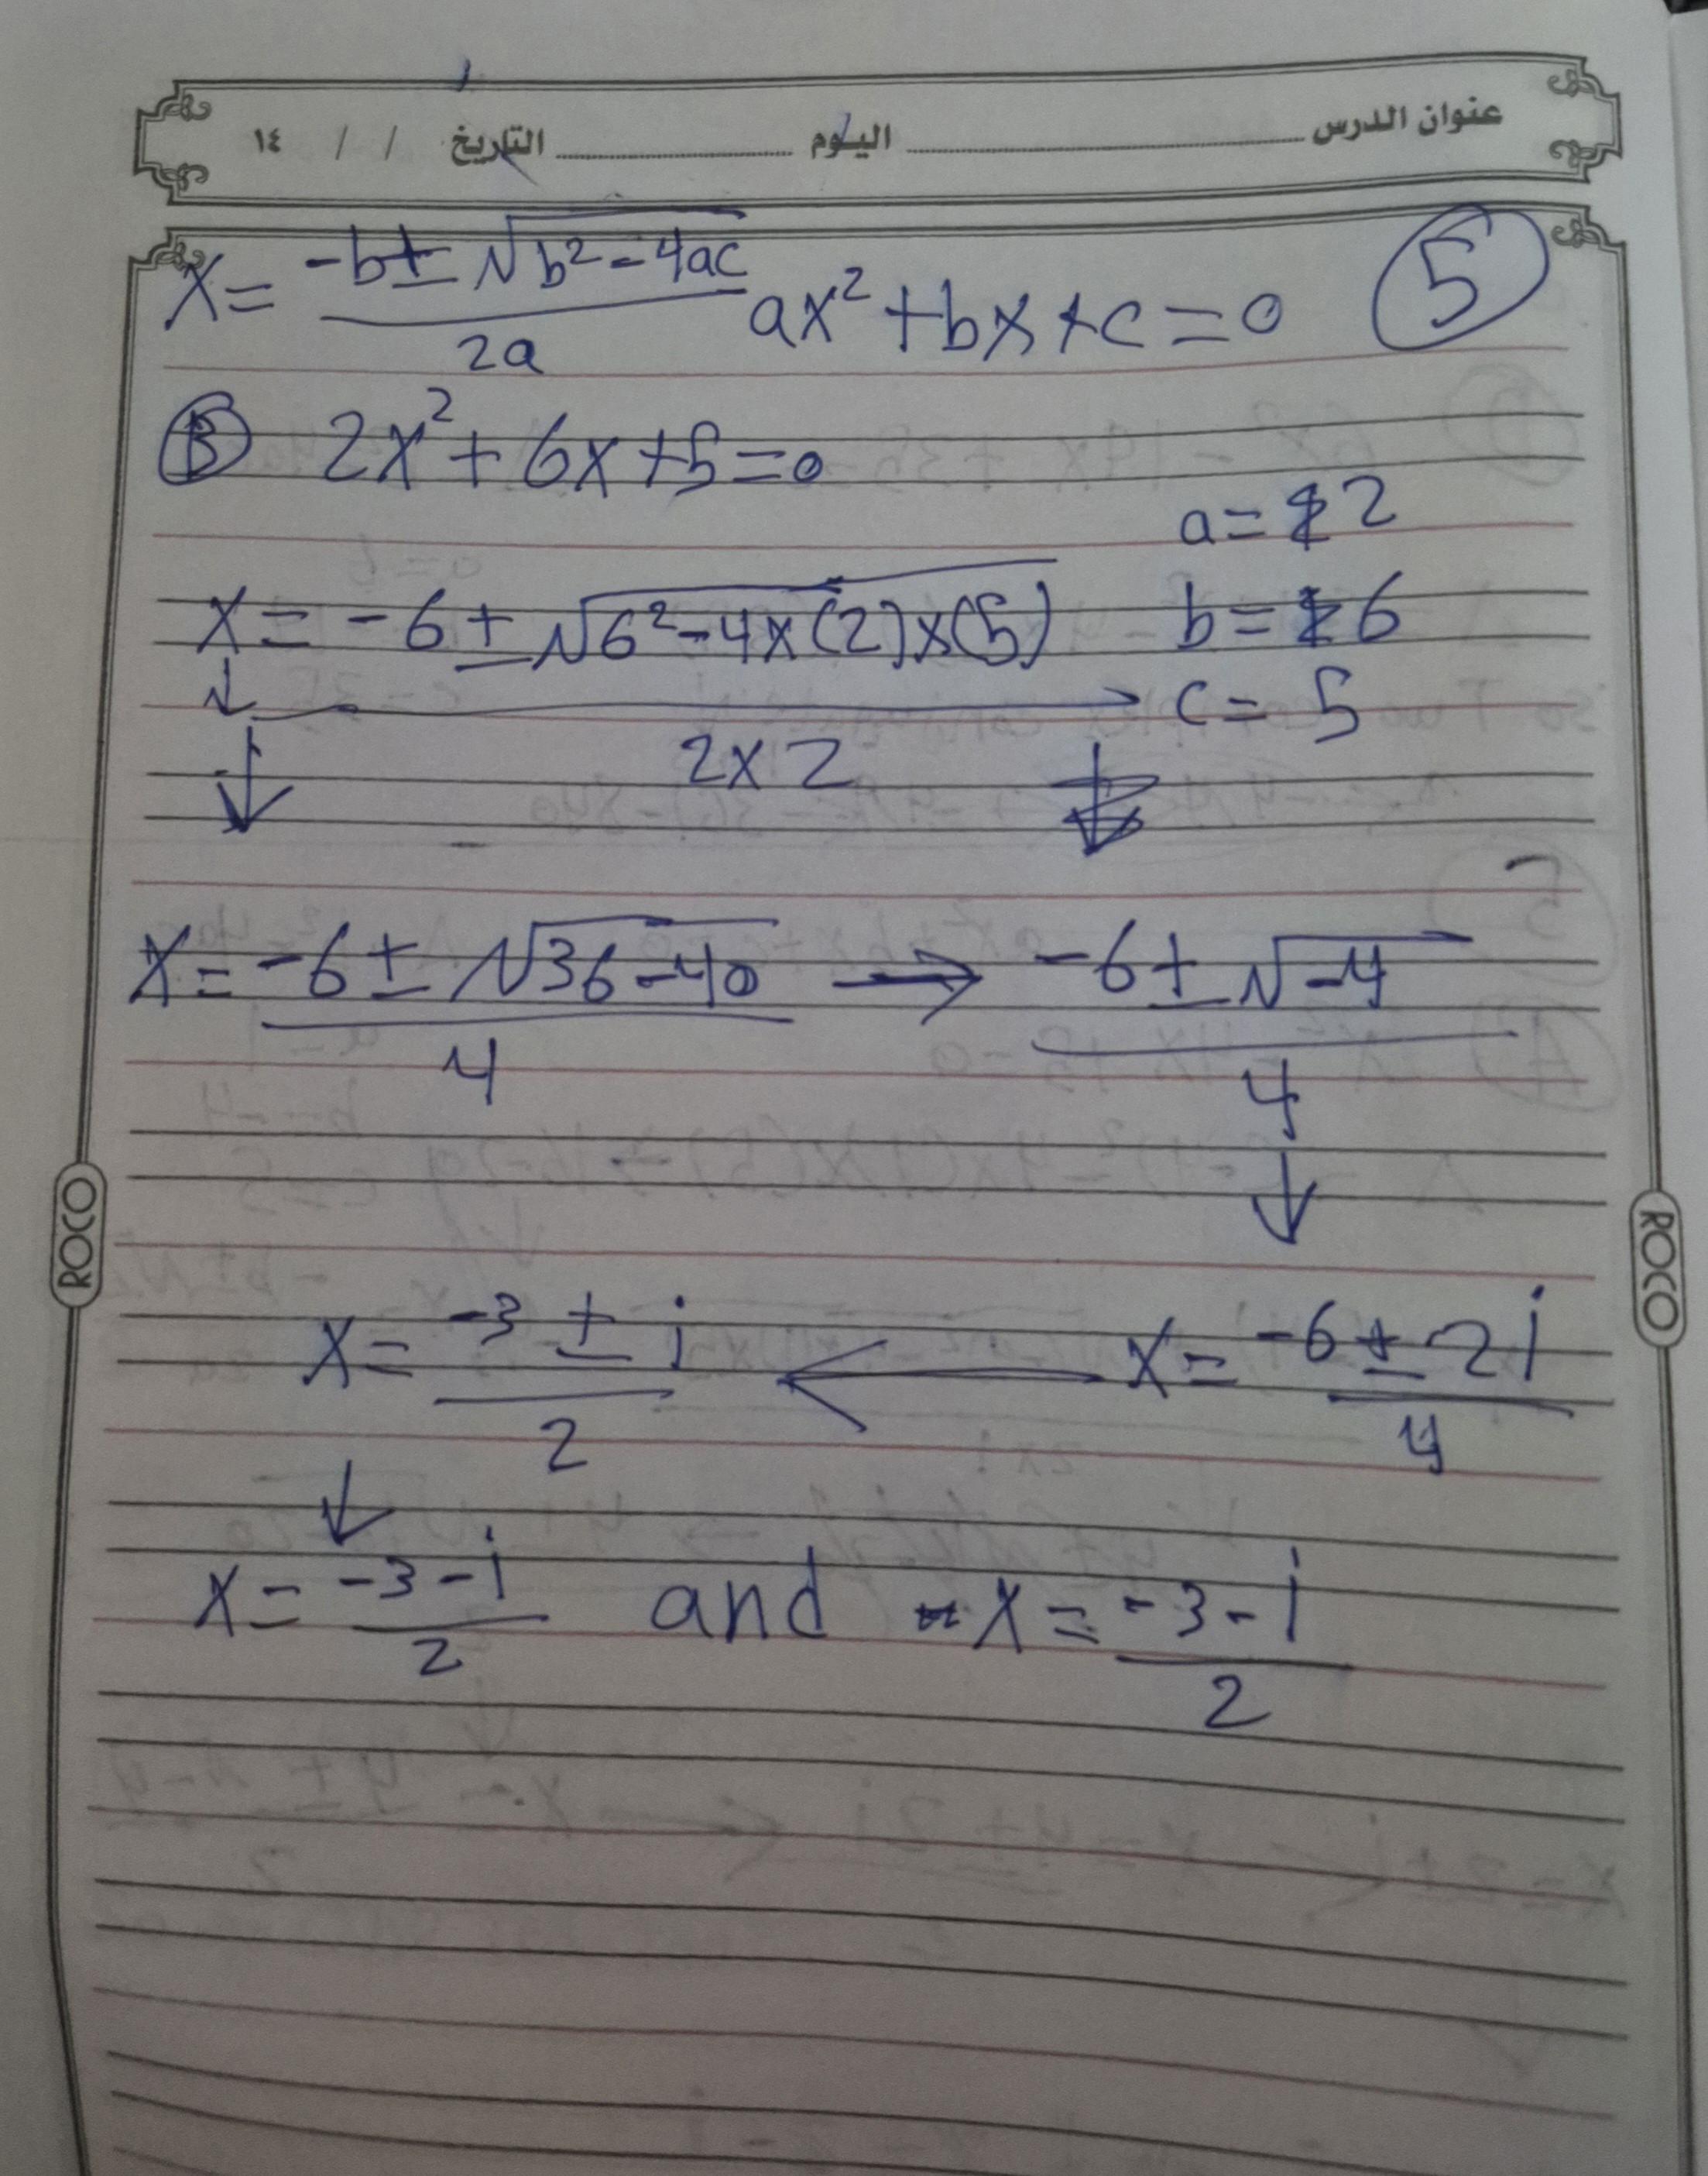 عنوان الدرس اليوم التاريخ / / ١٤
x = (-b ± √(b² - 4ac)) / 2a ax² + bx + c = 0 5
B 2x² + 6x + 5 = 0
a = 2
x = -6 ± √(6² - 4x(2)x(5)) b = 6
c = 5
2x2
x = (-6 ± √(36 - 40)) / 4 → (-6 ± √-4) / 4
x = (-3 ± i) / 2 ← x = (-6 ± 2i) / 4
x = (-3 - i) / 2 and x = (-3 - i) / 2
ROCO
ROCO